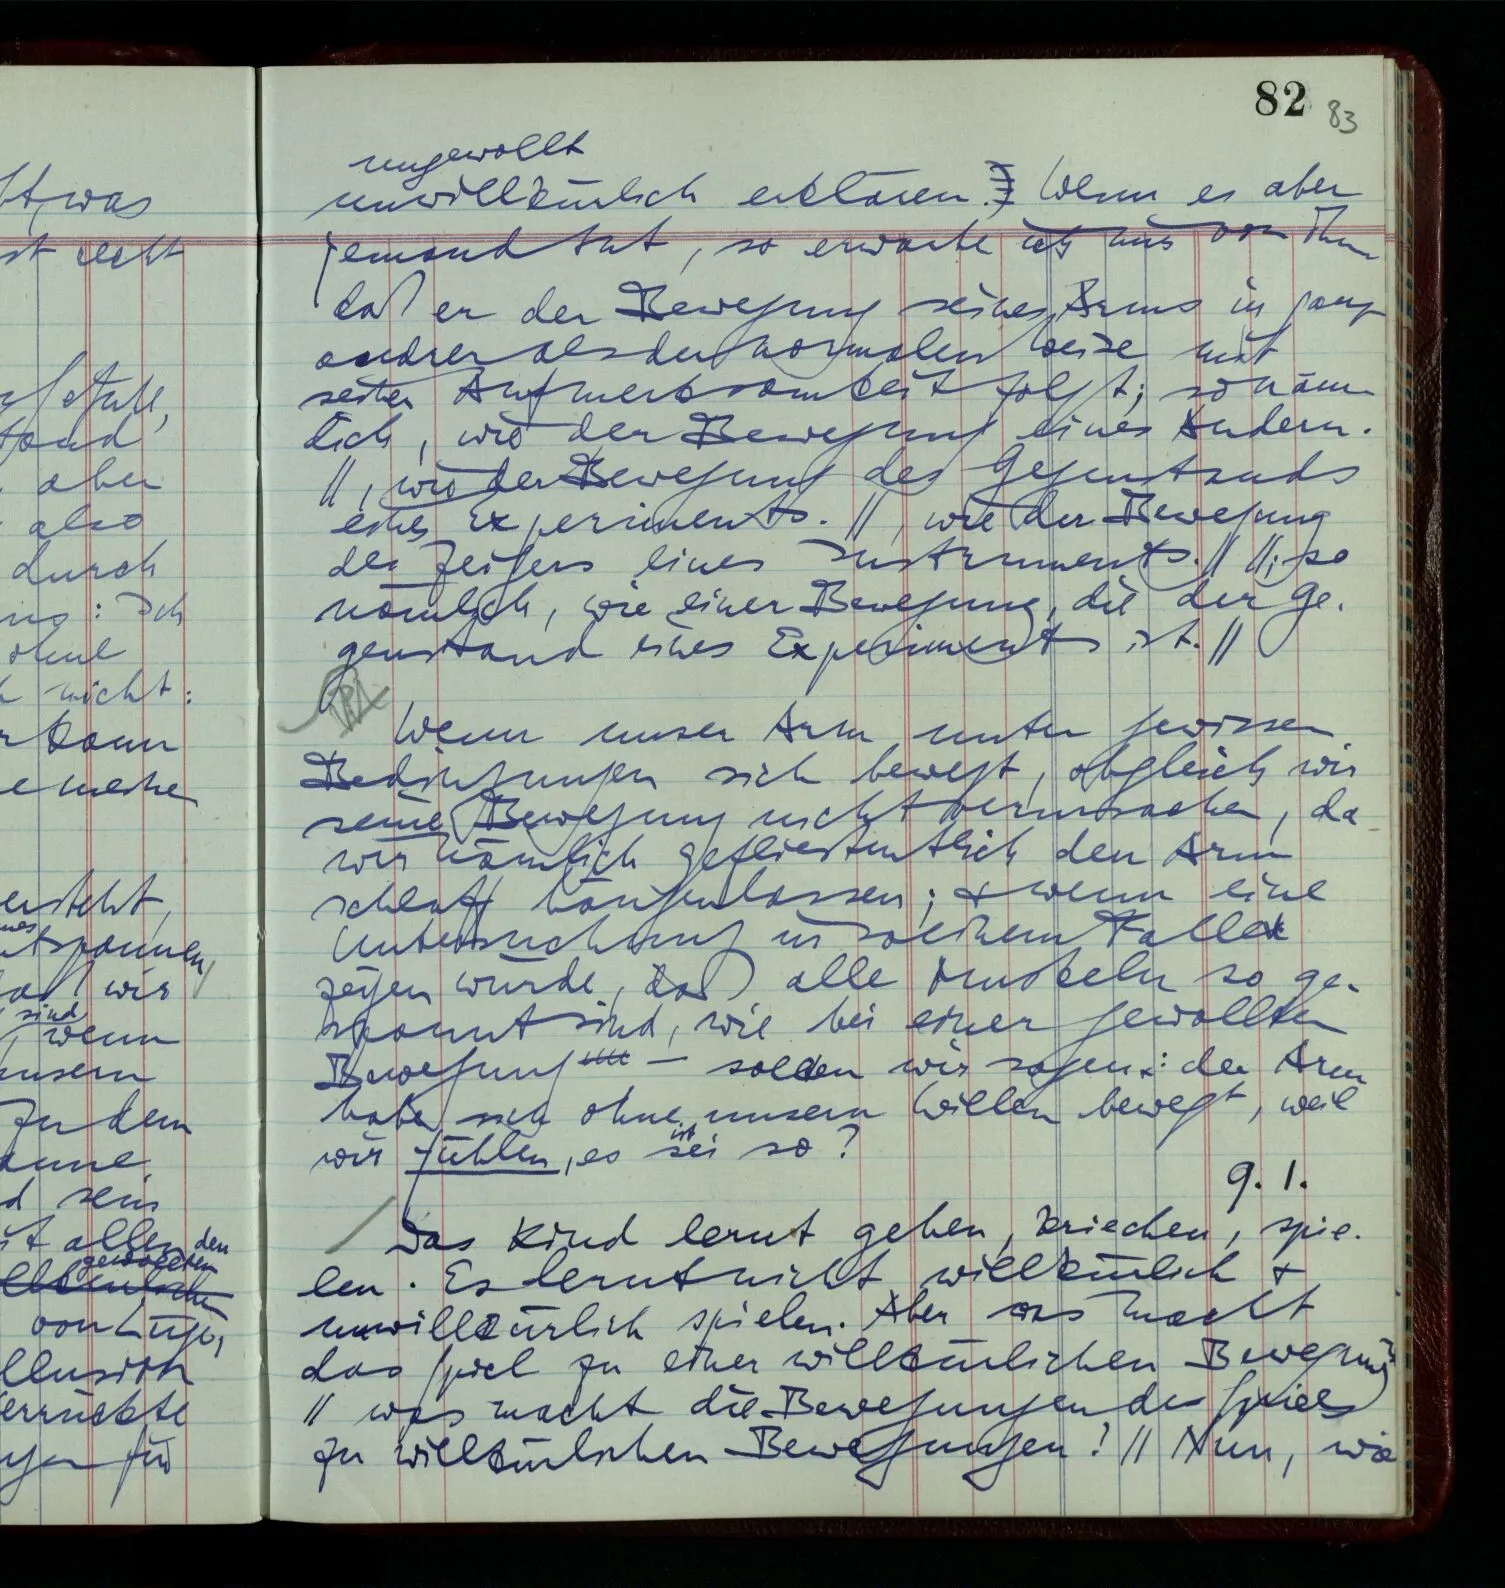 82 83
ungewollt
unwillkürlich erklären. Wenn es aber
jemand tut, so erwarte ich mir von ihm
daß er der Bewegung seines Arms in ganz
andrer als der normalen Weise mit
seiner Aufmerksamkeit folgt; so näm-
lich, wie der Bewegung eines Andern.
//, wie der Bewegung des Gegenstands
eines Experiments. //, wie der Bewegung
des Zeigers eines Instruments. // //; so
nämlich, wie einer Bewegung, die der Ge-
genstand eines Experiments ist. //
Wenn unser Arm unter gewissen
Bedingungen sich bewegt, obgleich wir
seine Bewegung nicht verursachen, da
wir nämlich geflissentlich den Arm
schlaff hängenlassen; & wenn eine
Untersuchung in solchem Falle
zeigen würde, daß alle Muskeln so ge-
spannt sind, wie bei einer gewollten
Bewegung — sollen wir sagen: der Arm
habe sich ohne unsern Willen bewegt, weil
ist
wir fühlen, es sei so?
9. 1.
Das Kind lernt gehen, kriechen, spie-
len. Es lernt nicht willkürlich &
unwillkürlich spielen. Aber was macht
das Spiel zu einer willkürlichen Bewegung
// was macht die Bewegungen des Spiels
zu willkürlichen Bewegungen? // Nun, wie
was
ist recht
aber
also
durch
Ich
ohne
nicht:
kann
meine
wir
sind
wenn
unsern
Zu dem
sein
allen den
gewollten
von Lüge,
Illusion
für